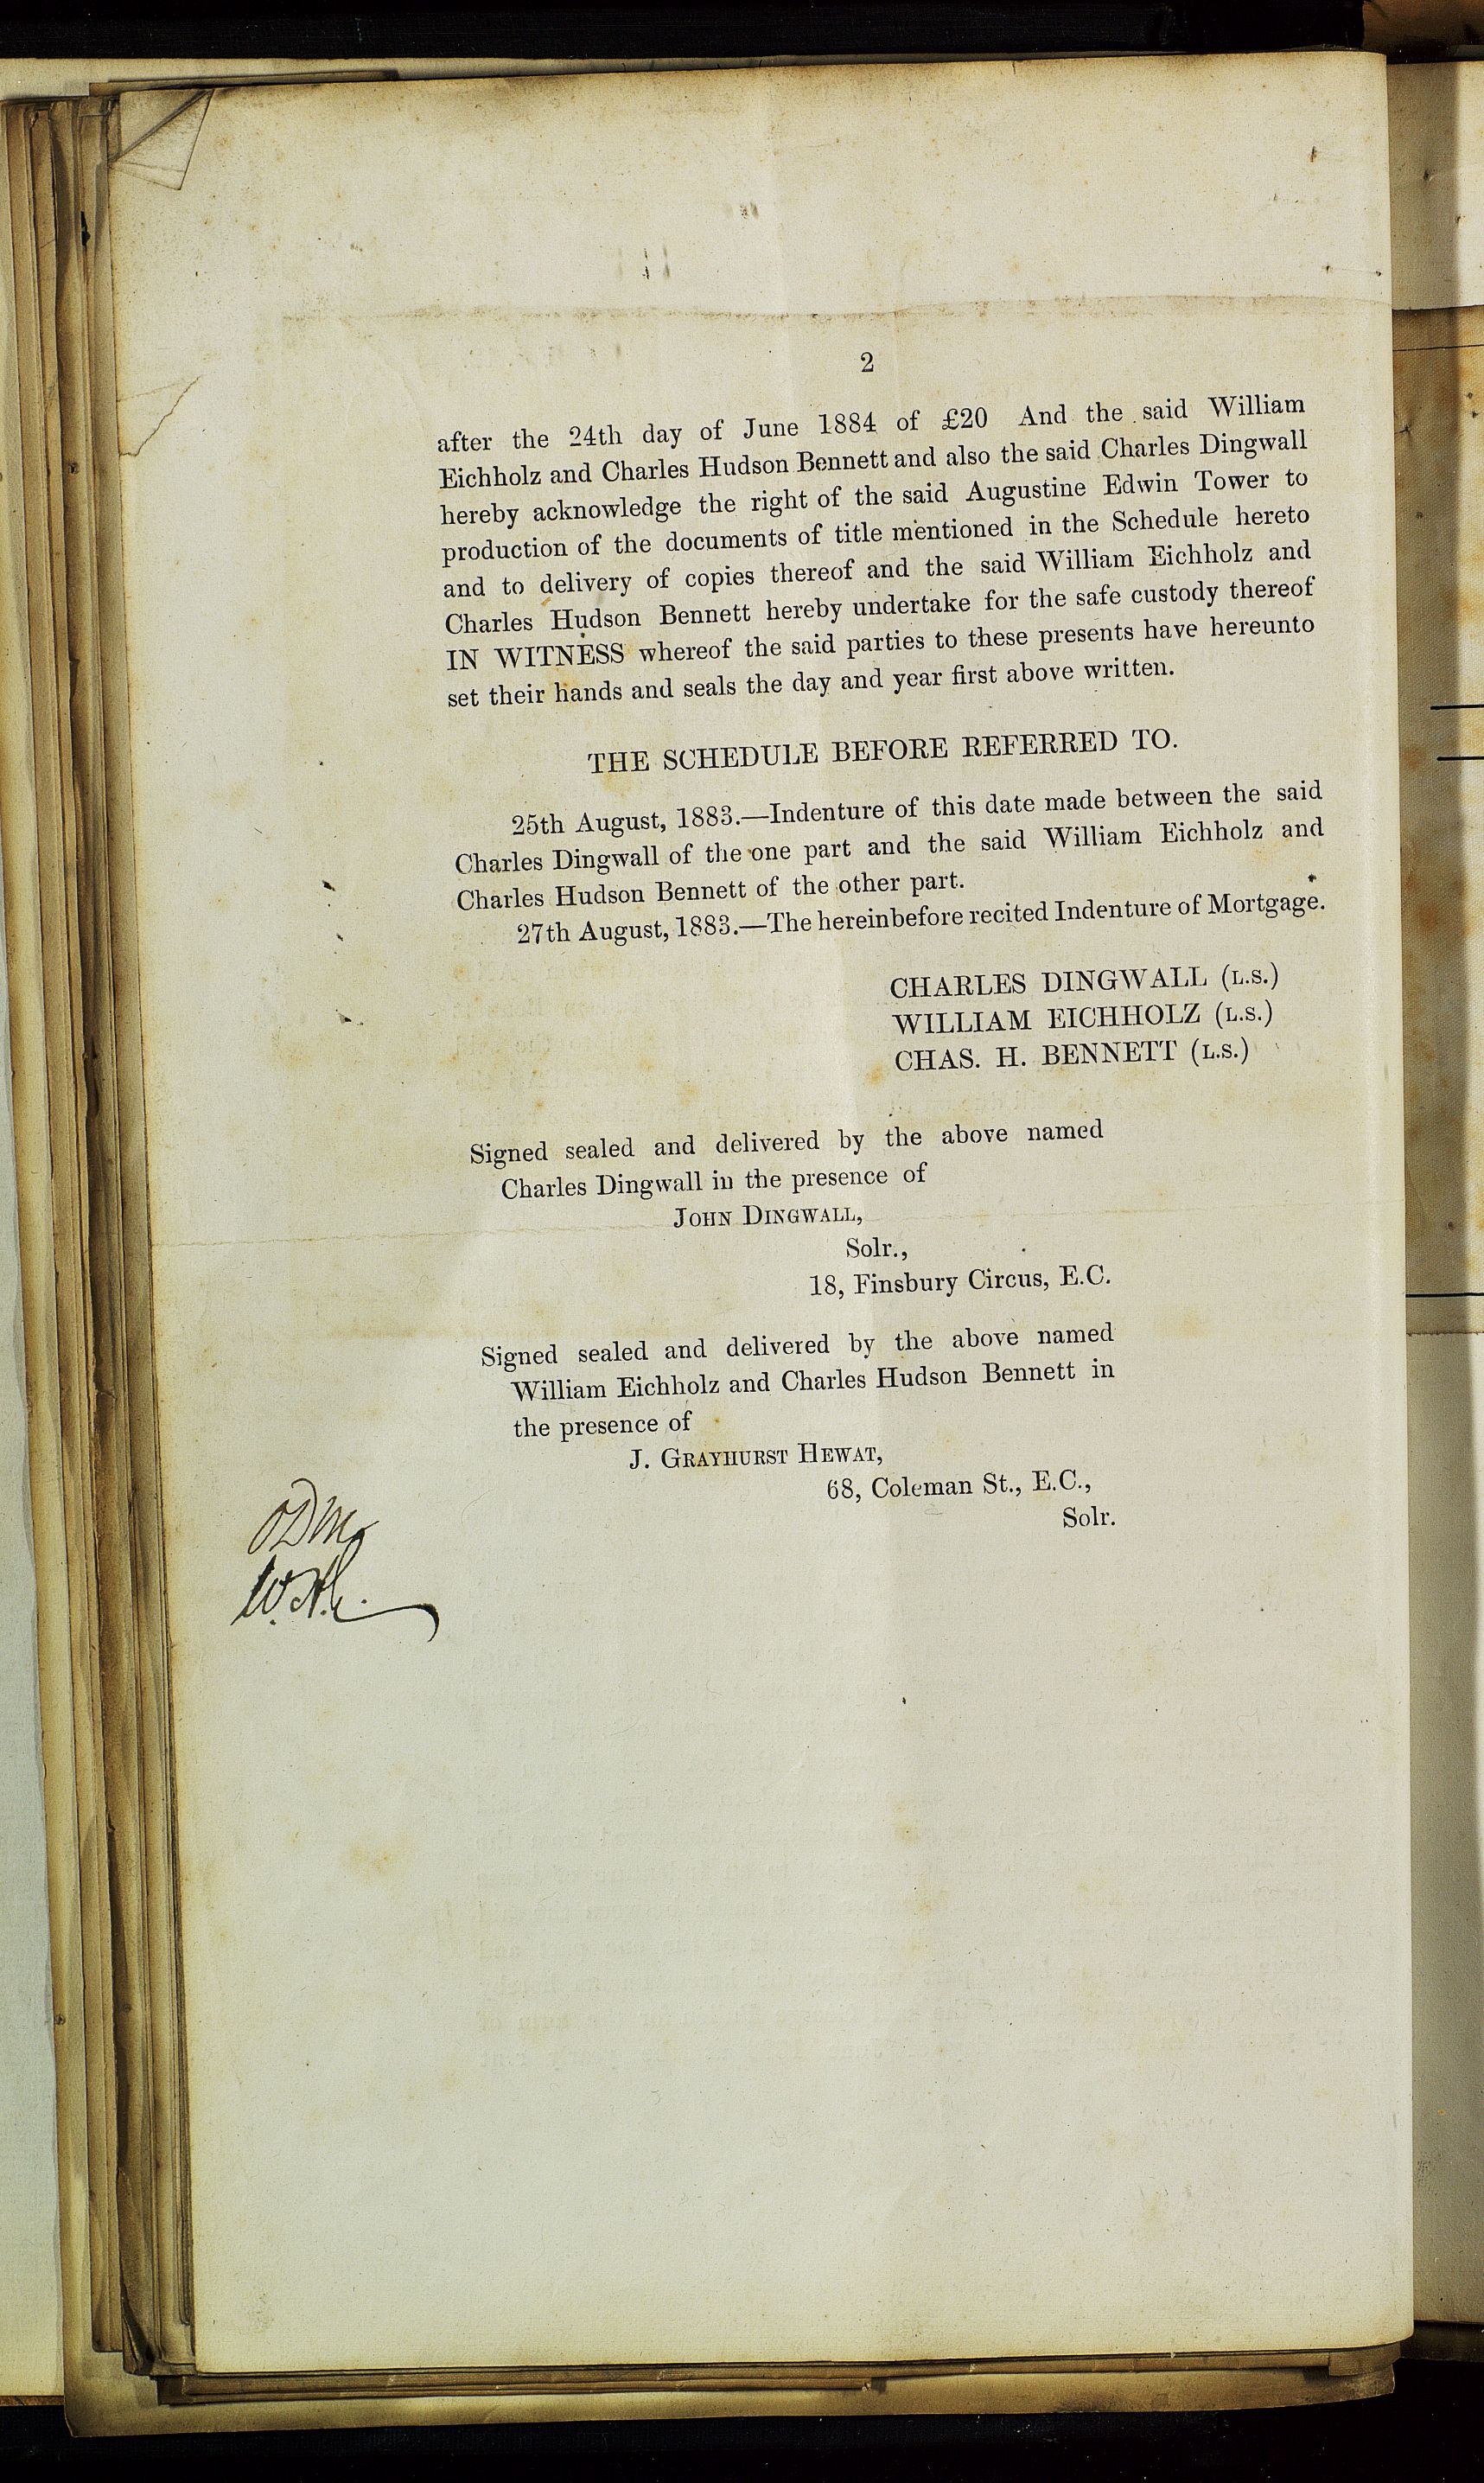 2
after the 24th day of June 1884 of £20 And the said William
Eichholz and Charles Hudson Bennett and also the said Charles Dingwall
hereby acknowledge the right of the said Augustine Edwin Tower to
production of the documents of title mentioned in the Schedule hereto
and to delivery of copies thereof and the said William Eichholz and
Charles Hudson Bennett hereby undertake for the safe custody thereof
IN WITNESS whereof the said parties to these presents have hereunto
set their hands and seals the day and year first above written.
THE SCHEDULE BEFORE REFERRED TO.
25th August, 1883.—Indenture of this date made between the said
Charles Dingwall of the one part and the said William Eichholz and
Charles Hudson Bennett of the other part.
27th August, 1883.—The hereinbefore recited Indenture of Mortgage.
CHARLES DINGWALL (L.S.)
WILLIAM EICHHOLZ (L.S.)
CHAS. H. BENNETT (L.S.)
Signed sealed and delivered by the above named
Charles Dingwall in the presence of
JOHN DINGWALL,
Solr.,
18, Finsbury Circus, E.C.
Signed sealed and delivered by the above named
William Eichholz and Charles Hudson Bennett in
the presence of
J. GRAYHURST HEWAT,
68, Coleman St., E.C.,
Solr.